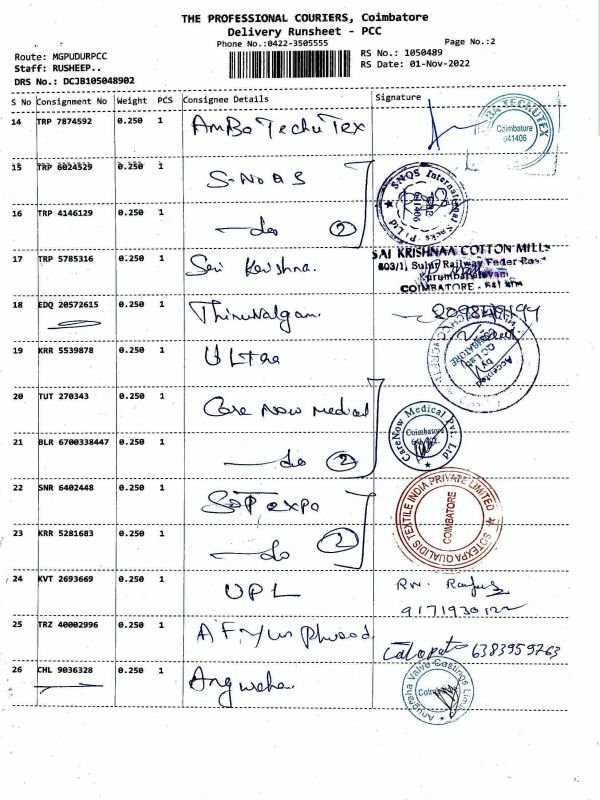 THE PROFESSIONAL COURIERS, Coimbatore
Delivery Runsheet - PCC
Phone No.:0422-3505555
Page No.:2
Route: MGPUDURPCC
RS No.: 1050489
Staff: RUSHEEP..
RS Date: 01-Nov-2022
DRS No.: DCJB105048902
S No Consignment No Weight PCS Consignee Details Signature
14 TRP 7874592 0.250 1 AmBo TechuTex
Coimbatore
641406
15 TRP 6024529 0.250 1 S-NOAS
SNQS International Socks P Ltd
641406
16 TRP 4146129 0.250 1 do 2
17 TRP 5785316 0.250 1 Sri Krishna.
SAI KRISHNAA COTTON MILLS
603/1, Sulur Railway Feder Road
Kurumbapalayam
COIMBATORE
18 EDQ 20572615 0.250 1
19 KRR 5539878 0.250 1 Ultra
Accepted
by
QC Lab
COIMBATORE
20 TUT 270343 0.250 1 Care Now Medical
CareNow Medical Pvt. Ltd
Coimbatore
21 BLR 6700338447 0.250 1 do 2
22 SNR 6402448 0.250 1 SOT expo
SOTEXPA QUALIDIS TEXTILE INDIA PRIVATE LIMITED
COIMBATORE
23 KRR 5281683 0.250 1 do 2
24 KVT 2693669 0.250 1 UPL
9171930122
25 TRZ 40002996 0.250 1
6383959763
26 CHL 9036328 0.250 1
Anugraha Valve Castings Limited